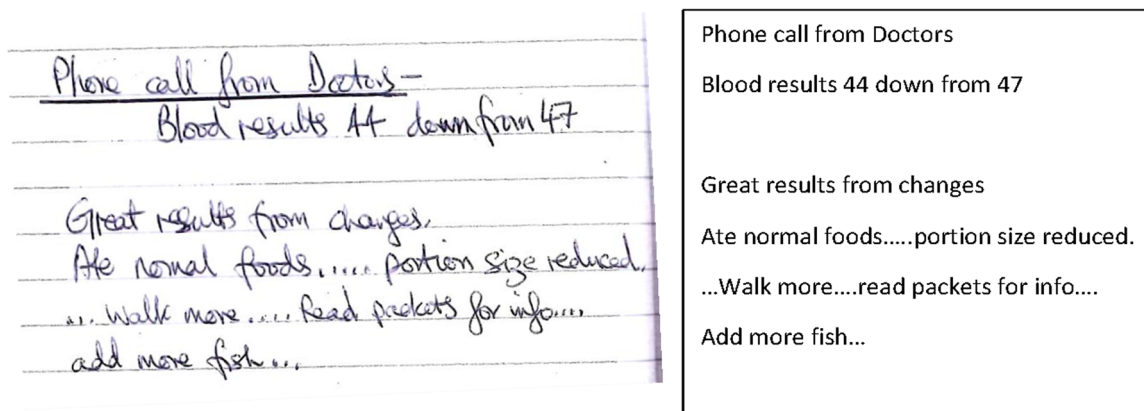 Phone call from Doctors-
Blood results 44 down from 47
Great results from changes.
Ate normal foods..... portion size reduced.
... Walk more.... Read packets for info....
add more fish...
Phone call from Doctors
Blood results 44 down from 47
Great results from changes
Ate normal foods.....portion size reduced.
...Walk more....read packets for info....
Add more fish...